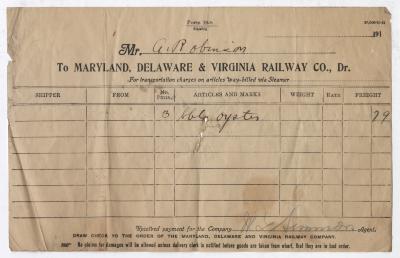 Mr. A. Robinson
191
To MARYLAND, DELAWARE & VIRGINIA RAILWAY CO., Dr.
For transportation charges on articles way-billed via Steamer
SHIPPER FROM No. Pkgs. ARTICLES AND MARKS WEIGHT RATE FREIGHT
3 bbls oyster 79
Received payment for the Company Agent.
DRAW CHECK TO THE ORDER OF THE MARYLAND, DELAWARE AND VIRGINIA RAILWAY COMPANY.
No claims for damages will be allowed unless delivery clerk is notified before goods are taken from wharf, that they are in bad order.